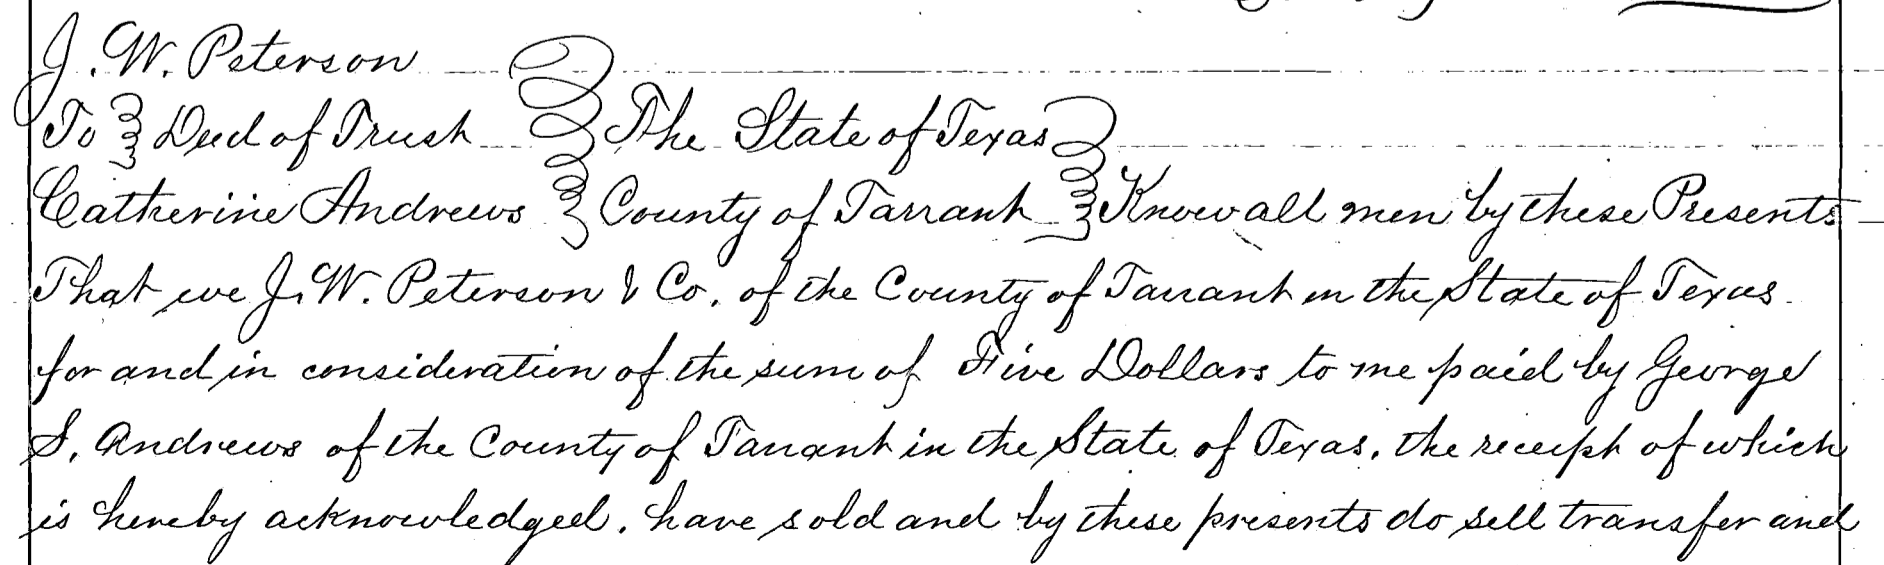 J. W. Peterson
To } Deed of Trust } The State of Texas }
Catherine Andrews } County of Tarrant } Know all men by these Presents
That we J. W. Peterson & Co. of the County of Tarrant in the State of Texas
for and in consideration of the sum of Five Dollars to me paid by George
S. Andrews of the County of Tarrant in the State of Texas, the receipt of which
is hereby acknowledged, have sold and by these presents do sell transfer and